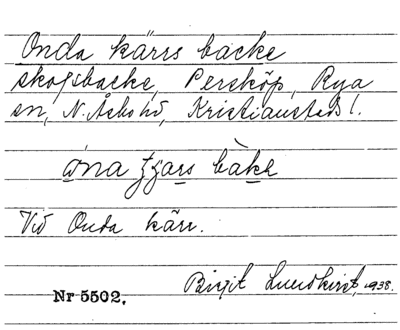 Onda kärrs backe
skogsbacke, Perstorp, Rya
sn, N. Åsbo hd, Kristianstads l.
Vid Onda kärr.
Birgit Lundkvist, 1938.
Nr 5502.